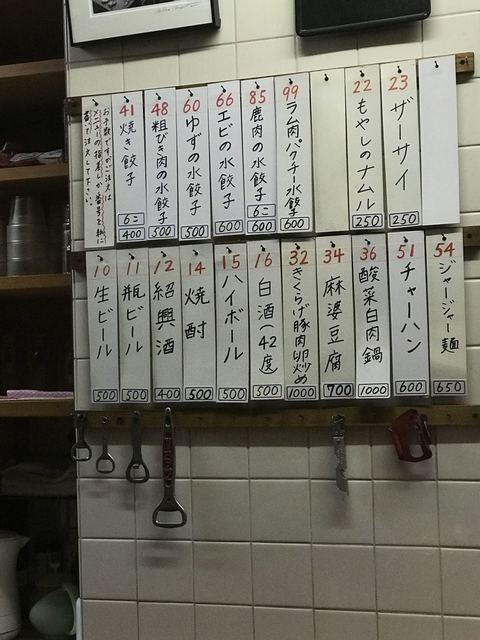 お手数ですがご注文は
メニューの指差しか番号を紙に
書いて注文して下さい。
41
焼き餃子
6こ
400
48
粗びき肉の水餃子
500
60
ゆずの水餃子
500
66
エビの水餃子
600
85
鹿肉の水餃子
6こ
600
99
ラム肉パクチー水餃子
600
22
もやしのナムル
250
23
ザーサイ
250
10
生ビール
500
11
瓶ビール
500
12
紹興酒
400
14
焼酎
500
15
ハイボール
500
16
白酒(42度
500
32
きくらげ豚肉卵炒め
1000
34
麻婆豆腐
700
36
酸菜白肉鍋
1000
51
チャーハン
600
54
ジャージャー麺
650